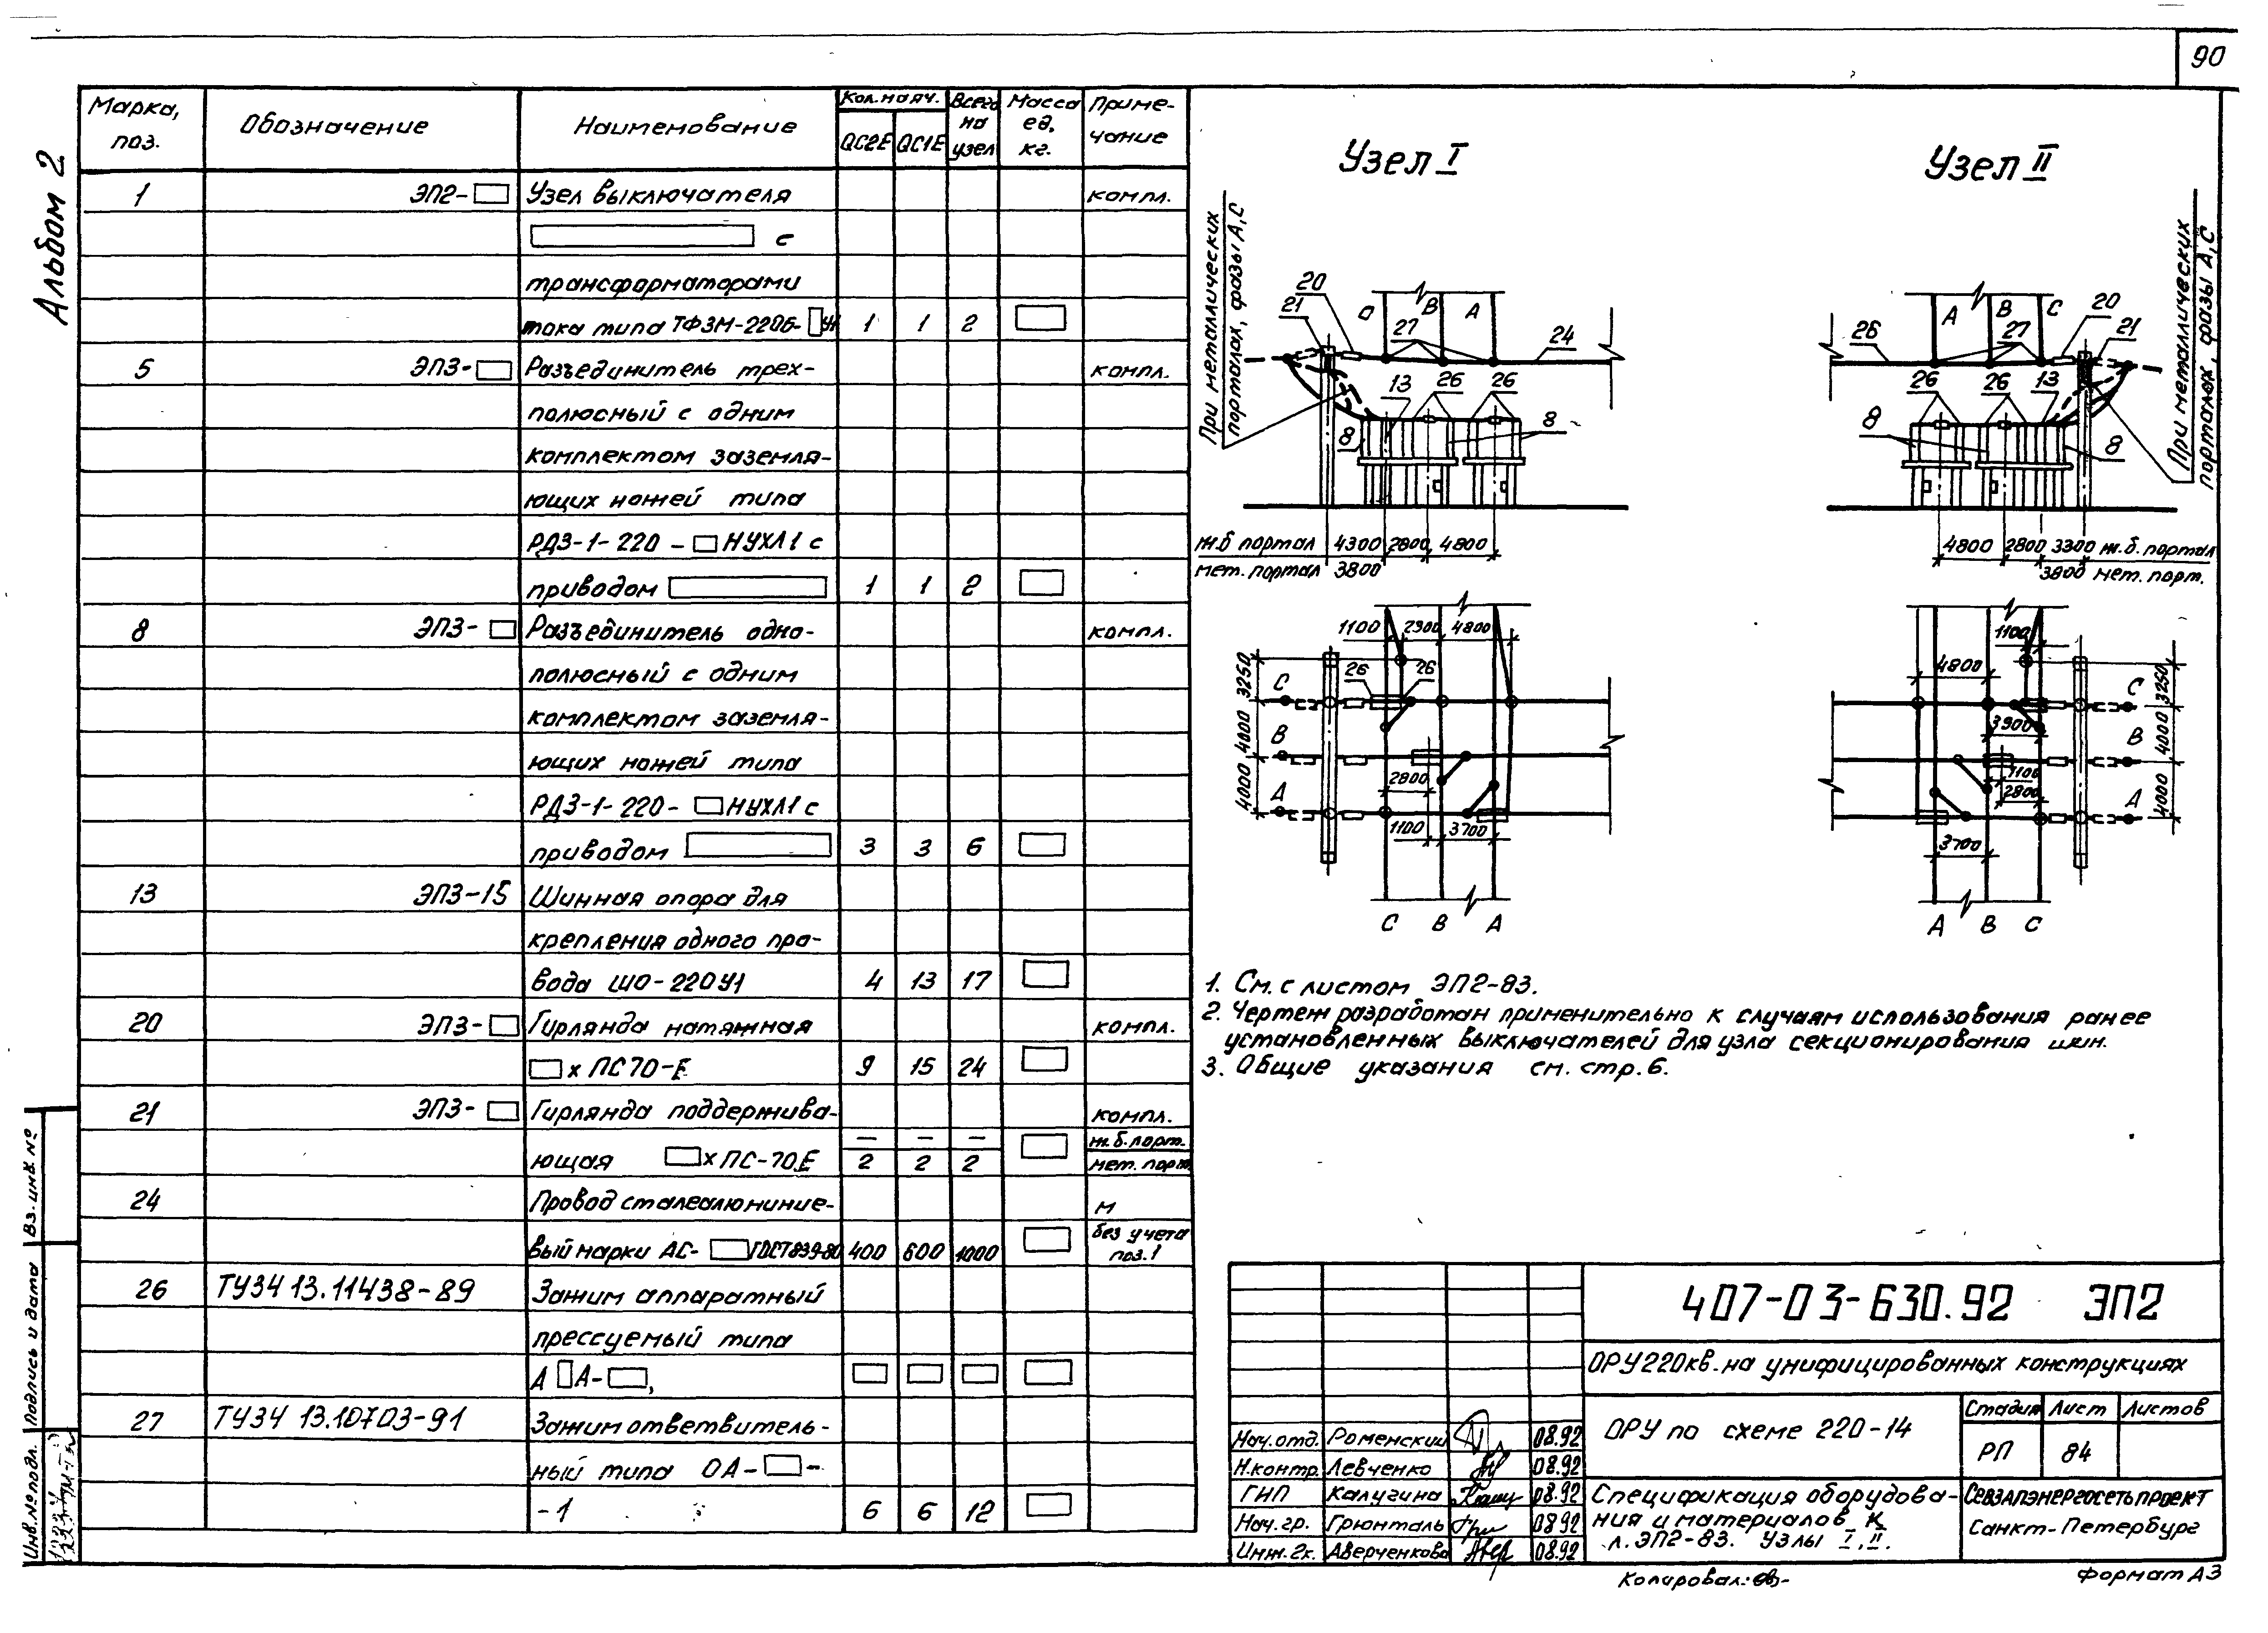 90
Альбом 2
Марка, поз. Обозначение Наименование Кол. на яч. Всего на узел Масса ед. кг. Приме-чание
QC2E QC1E
1 ЭП2- Узел выключателя компл.
с
трансформаторами
тока типа ТФЗМ-220Б- У1 1 1 2
5 ЭП3- Разъединитель трех- компл.
полюсный с одним
комплектом заземля-
ющих ножей типа
РДЗ-1-220- НУХЛ1 с
приводом 1 1 2
8 ЭП3- Разъединитель одно- компл.
полюсный с одним
комплектом заземля-
ющих ножей типа
РДЗ-1-220- НУХЛ1 с
приводом 3 3 6
13 ЭП3-15 Шинная опора для
крепления одного про-
вода ШО-220У1 4 13 17
20 ЭП3- Гирлянда натяжная компл.
х ПС70-Е 9 15 24
21 ЭП3- Гирлянда поддержива- компл.
— — — ж.б. порт.
ющая х ПС-70Е 2 2 2 мет. порт.
24 Провод сталеалюминие- м
вый марки АС- ГОСТ 839-80 400 600 1000 без учета поз.1
26 ТУ34 13.11438-89 Зажим аппаратный
прессуемый типа
А А- ,
27 ТУ34 13.10703-91 Зажим ответвитель-
ный типа ОА- -
-1 6 6 12
Узел I
При металлических
порталах, фазы А,С
20
21
В А
27
24
13 26 26
8 8
ж.б портал 4300 2800 4800
мет. портал 3800
1100 2300 4800
26 26
3250
4000
4000
С
В
А
2800
1100 3700
С В А
Узел II
При металлических
порталах, фазы А,С
А В С
20
21
26
27
26 26 13
8 8
4800 2800 3300 ж.б. портал
3800 мет. порт.
1100
4800
3900
1100
2800
3700
С
В
А
3250
4000
4000
А В С
1. См. с листом ЭП2-83.
2. Чертеж разработан применительно к случаям использования ранее
установленных выключателей для узла секционирования шин.
3. Общие указания см. стр. 6.
407-03-630.92 ЭП2
ОРУ 220кв. на унифицированных конструкциях
ОРУ по схеме 220-14
Стадия Лист Листов
РП 84
Спецификация оборудова-
ния и материалов к
л. ЭП2-83. Узлы I, II.
Севзапэнергосетьпроект
Санкт-Петербург
Нач.отд. Роменский 08.92
Н.контр. Левченко 08.92
ГИП Калугина 08.92
Нач. гр. Грюнталь 08.92
Инж. 2к. Аверченкова 08.92
Копировал:
Формат А3
Инв.№ подл. Подпись и дата Вз. инв. №